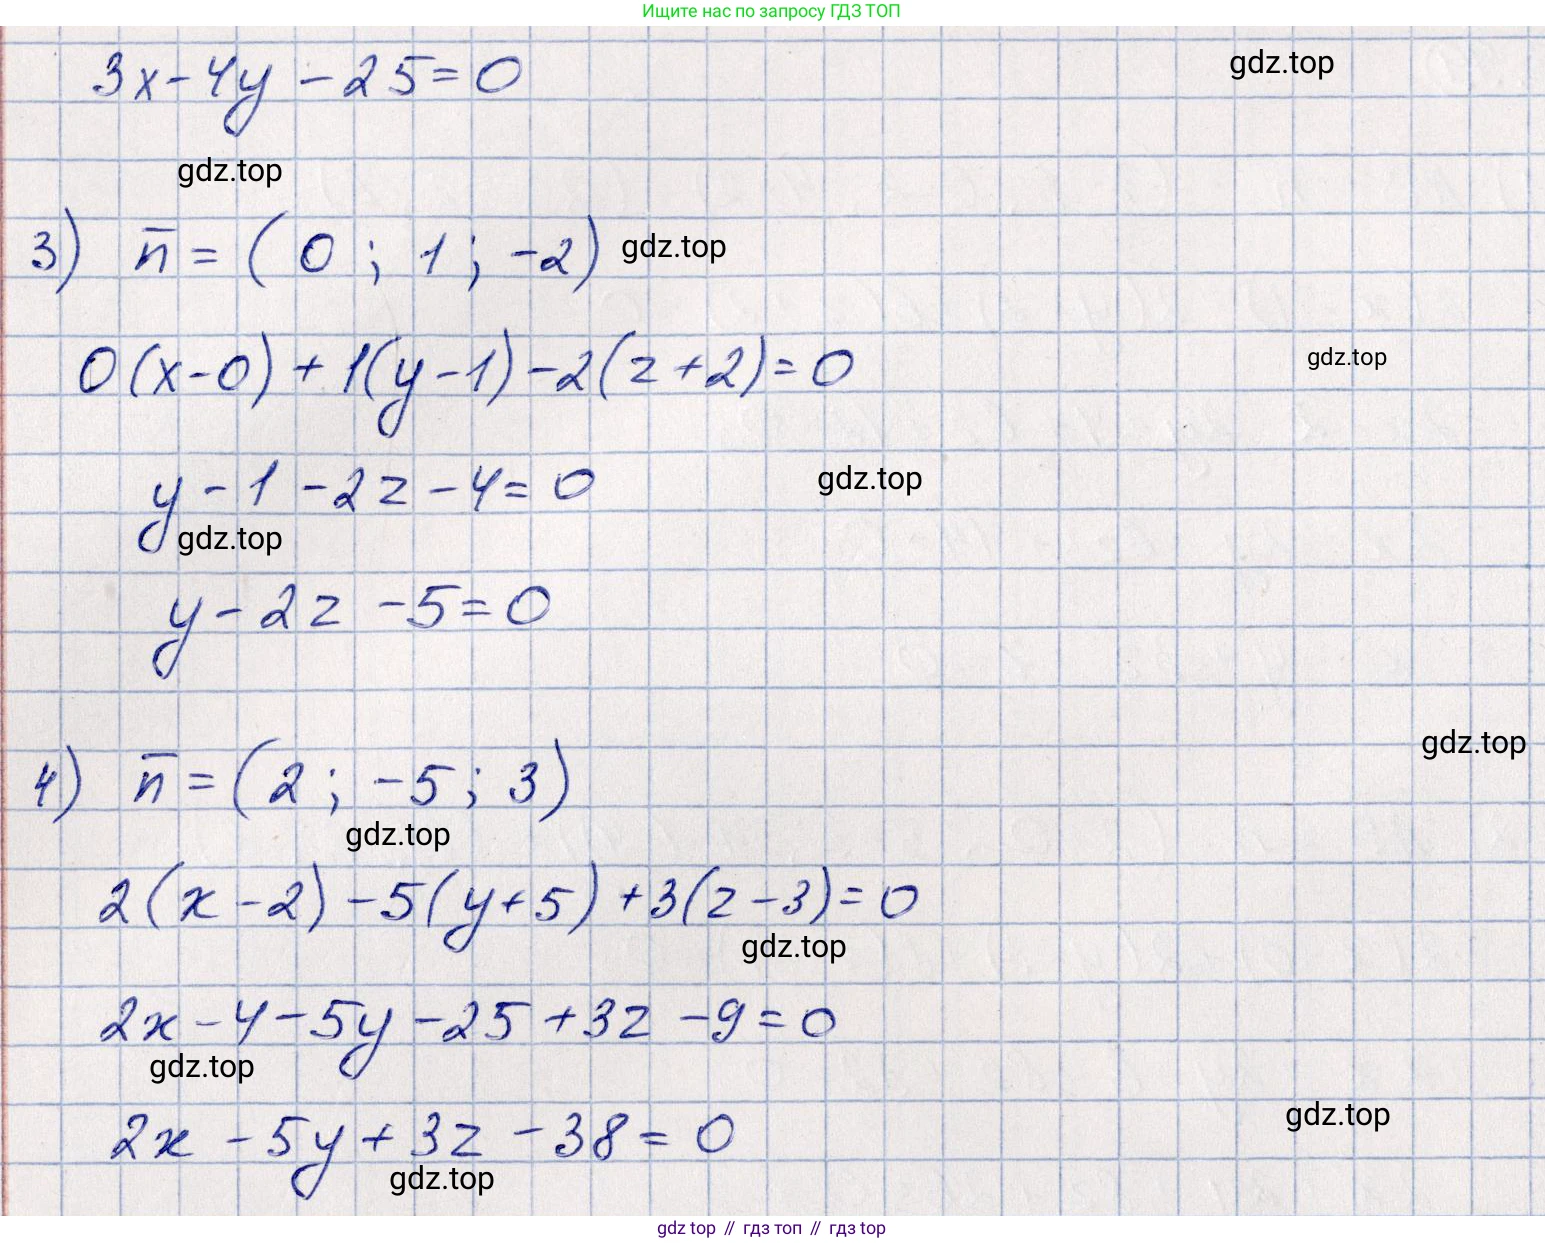 Ищите нас по запросу ГДЗ ТОП
3x - 4y - 25 = 0
gdz.top
gdz.top
3) n̅ = ( 0 ; 1 ; -2)
gdz.top
0(x-0) + 1(y-1) - 2(z+2) = 0
gdz.top
y - 1 - 2z - 4 = 0
gdz.top
gdz.top
y - 2z - 5 = 0
gdz.top
4) n̅ = (2 ; -5 ; 3)
gdz.top
2(x-2) - 5(y+5) + 3(z-3) = 0
gdz.top
2x - 4 - 5y - 25 + 3z - 9 = 0
gdz.top
2x - 5y + 3z - 38 = 0
gdz.top
gdz.top
gdz top // гдз топ // gdz top